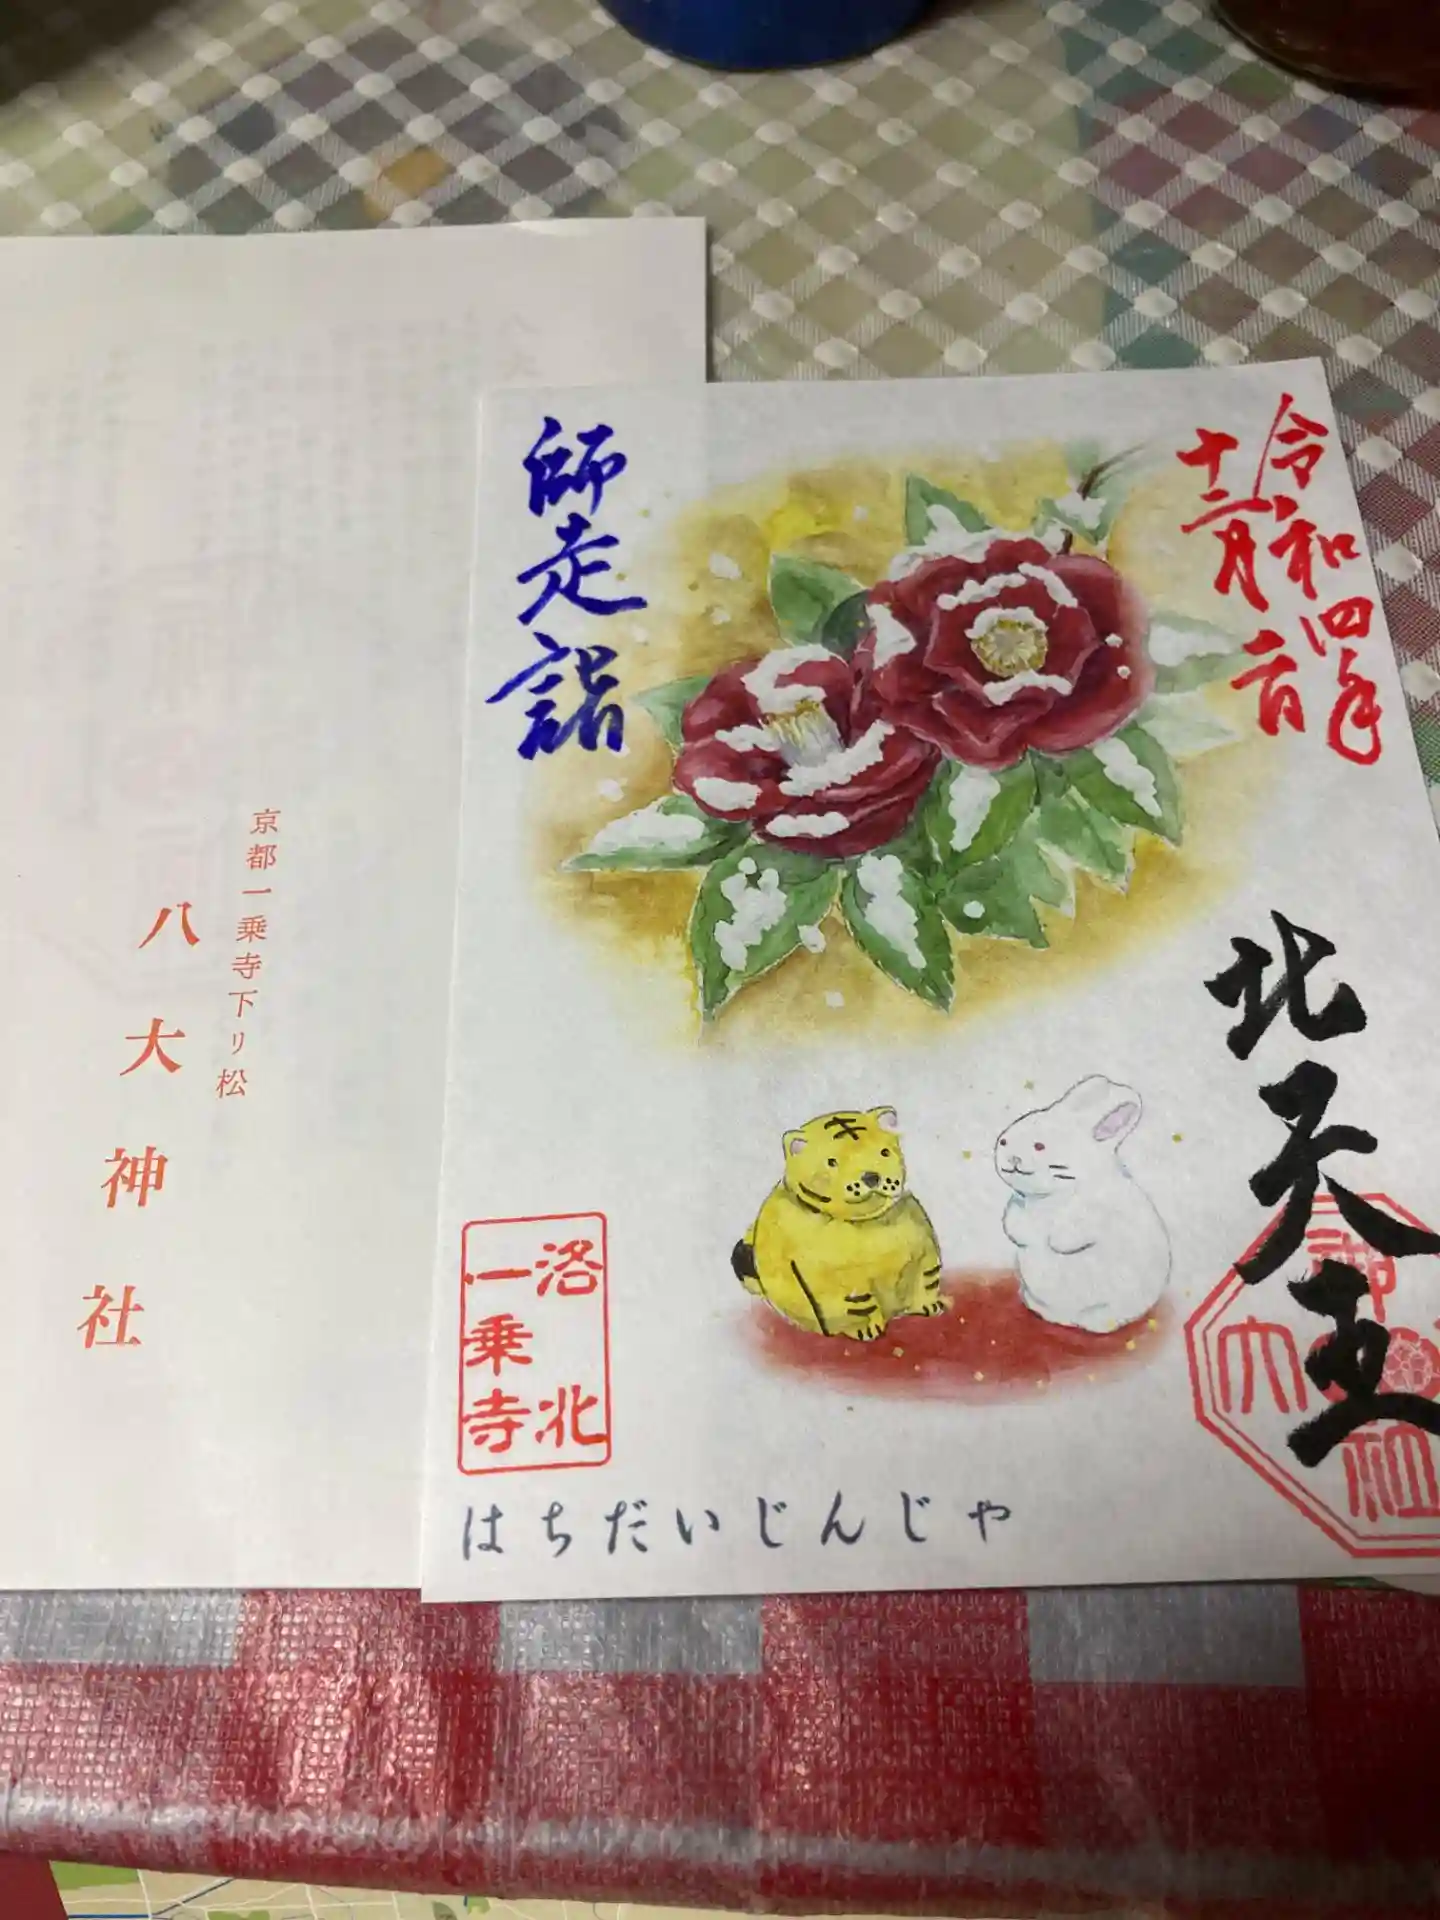 令和四年
十二月一日
師走詣
北天王
洛北
一乗寺
はちだいじんじゃ
京都一乗寺下リ松
八大神社